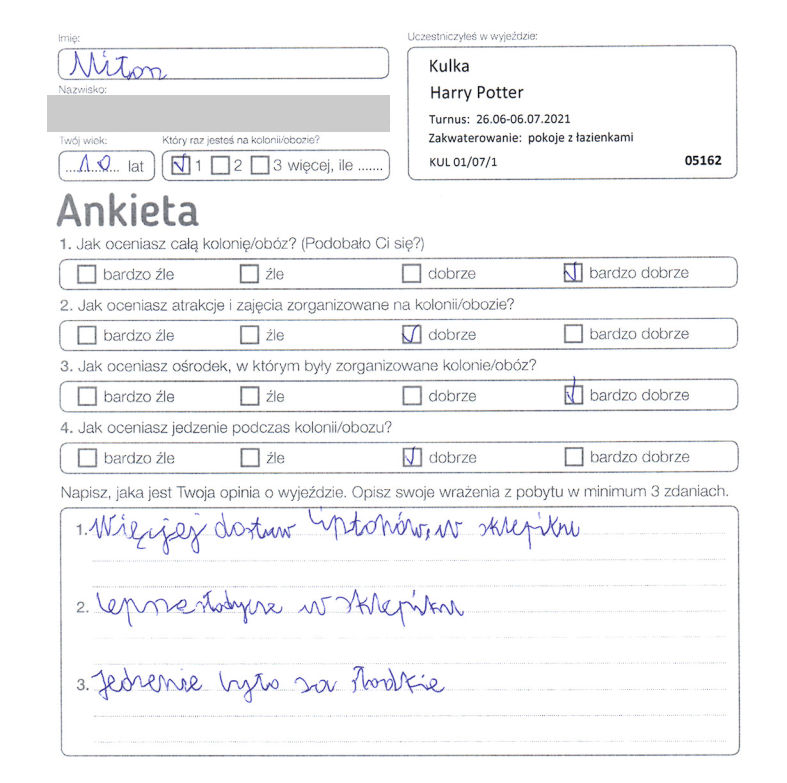 Imię:
Miłon
Nazwisko:
Twój wiek:
....10.... lat
Który raz jesteś na kolonii/obozie?
1 2 3 więcej, ile .......
Uczestniczyłeś w wyjeździe:
Kulka
Harry Potter
Turnus: 26.06-06.07.2021
Zakwaterowanie: pokoje z łazienkami
KUL 01/07/1 05162
Ankieta
1. Jak oceniasz całą kolonię/obóz? (Podobało Ci się?)
bardzo źle źle dobrze bardzo dobrze
2. Jak oceniasz atrakcje i zajęcia zorganizowane na kolonii/obozie?
bardzo źle źle dobrze bardzo dobrze
3. Jak oceniasz ośrodek, w którym były zorganizowane kolonie/obóz?
bardzo źle źle dobrze bardzo dobrze
4. Jak oceniasz jedzenie podczas kolonii/obozu?
bardzo źle źle dobrze bardzo dobrze
Napisz, jaka jest Twoja opinia o wyjeździe. Opisz swoje wrażenia z pobytu w minimum 3 zdaniach.
1. Więcjej dostaw liptonów, w sklepiku
2. lepsze słodycze w sklepiku
3. Jedzenie było za słodkie